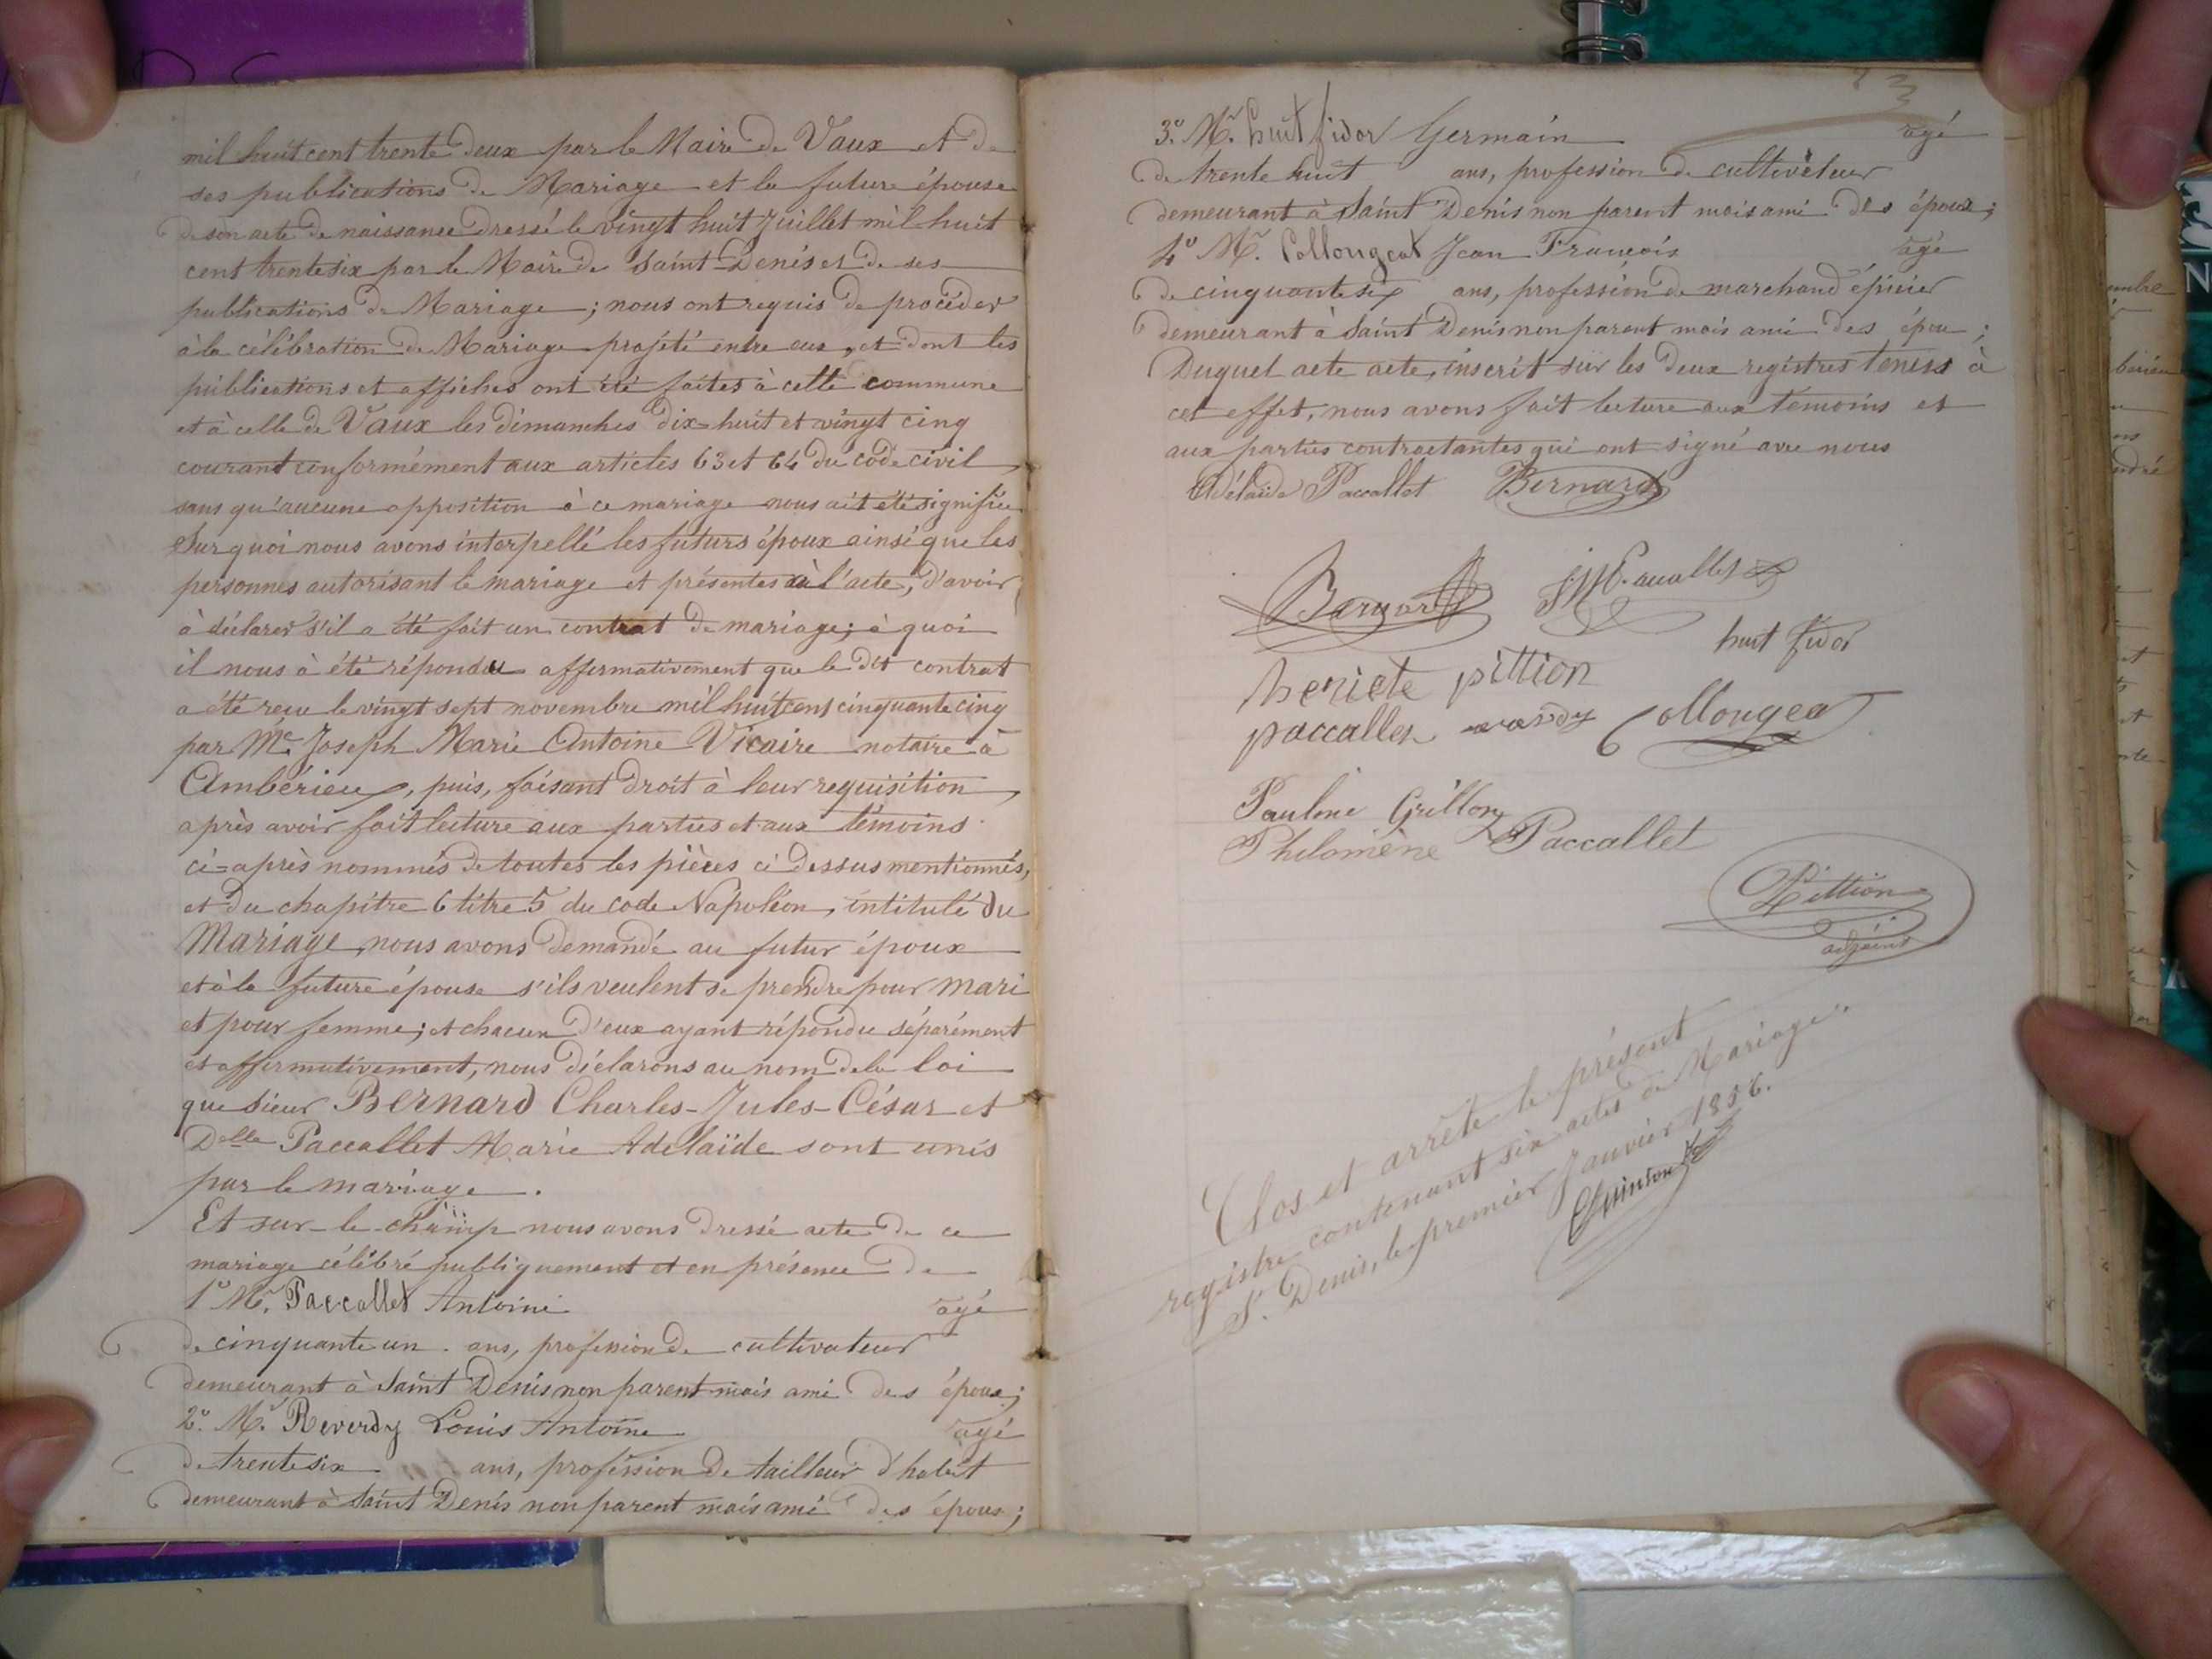 mil huit cent trente deux par le Maire de Vaux et de
ses publications de Mariage et la future épouse
de son acte de naissance dressé le vingt huit Juillet mil huit
cent trente six par le Maire de Saint-Denis et de ses
publications de Mariage; nous ont requis de procéder
à la célébration de Mariage projeté entre eux, et dont les
publications et affiches ont été faites à cette commune
et à celle de Vaux les dimanches dix-huit et vingt cinq
courant conformément aux articles 63 et 64 du code civil
sans qu'aucune opposition à ce mariage nous ait été signifiée
Sur quoi nous avons interpellé les futurs époux ainsi que les
personnes autorisant le mariage et présentes à l'acte, d'avoir
à déclarer s'il a été fait un contrat de mariage; à quoi
il nous à été répondu affirmativement que le dit contrat
a été reçu le vingt sept novembre mil huit cent cinquante cinq
par Me Joseph Marie Antoine Vicaire notaire à
Ambérieu, puis, faisant droit à leur requisition,
après avoir fait lecture aux parties et aux témoins
ci=après nommés de toutes les pièces ci dessus mentionnés,
et du chapitre 6 titre 5 du code Napoléon, intitulé du
Mariage, nous avons demandé au futur époux
et à la future épouse s'ils veulent se prendre pour mari
et pour femme; et chacun d'eux ayant répondu séparément
et affirmativement, nous déclarons au nom de la loi
que sieur Bernard Charles-Jules-César et
Delle Paccallet Marie Adelaïde sont unis
par le mariage.
Et sur-le-champ nous avons dressé acte de ce
mariage célébré publiquement et en présence de
1o Mr. Paccallet Antoine agé
de cinquante un ans, profession de cultivateur
demeurant à Saint Denis non parent mais ami des époux;
2o. Mr. Reverdy Louis Antoine agé
de trente six ans, profession de tailleur d'habit
demeurant à Saint Denis non parent mais ami des époux;
3o. Mr. huit fidor Germain agé
de trente huit ans, profession de cultivateur
demeurant à Saint Denis non parent mais ami des époux;
4o Mr. Collongeat Jean François agé
de cinquante six ans, profession de marchand épicier
demeurant à Saint Denis non parent mais ami des épou;
Duquel acte acte, inscrit sur les deux registres tenus à
cet effet, nous avons fait lecture aux témoins et
aux parties contractantes qui ont signé avec nous
Adélaïde Paccallet Bernard
Bernard
huit fidor
heriete pittion
paccallet Collongeat
Pauline Grillon
Philomène Paccallet
Pittion
adjoint
Clos et arrêté le présent
registre contenant six actes de Mariage.
St. Denis, le premier Janvier 1856.